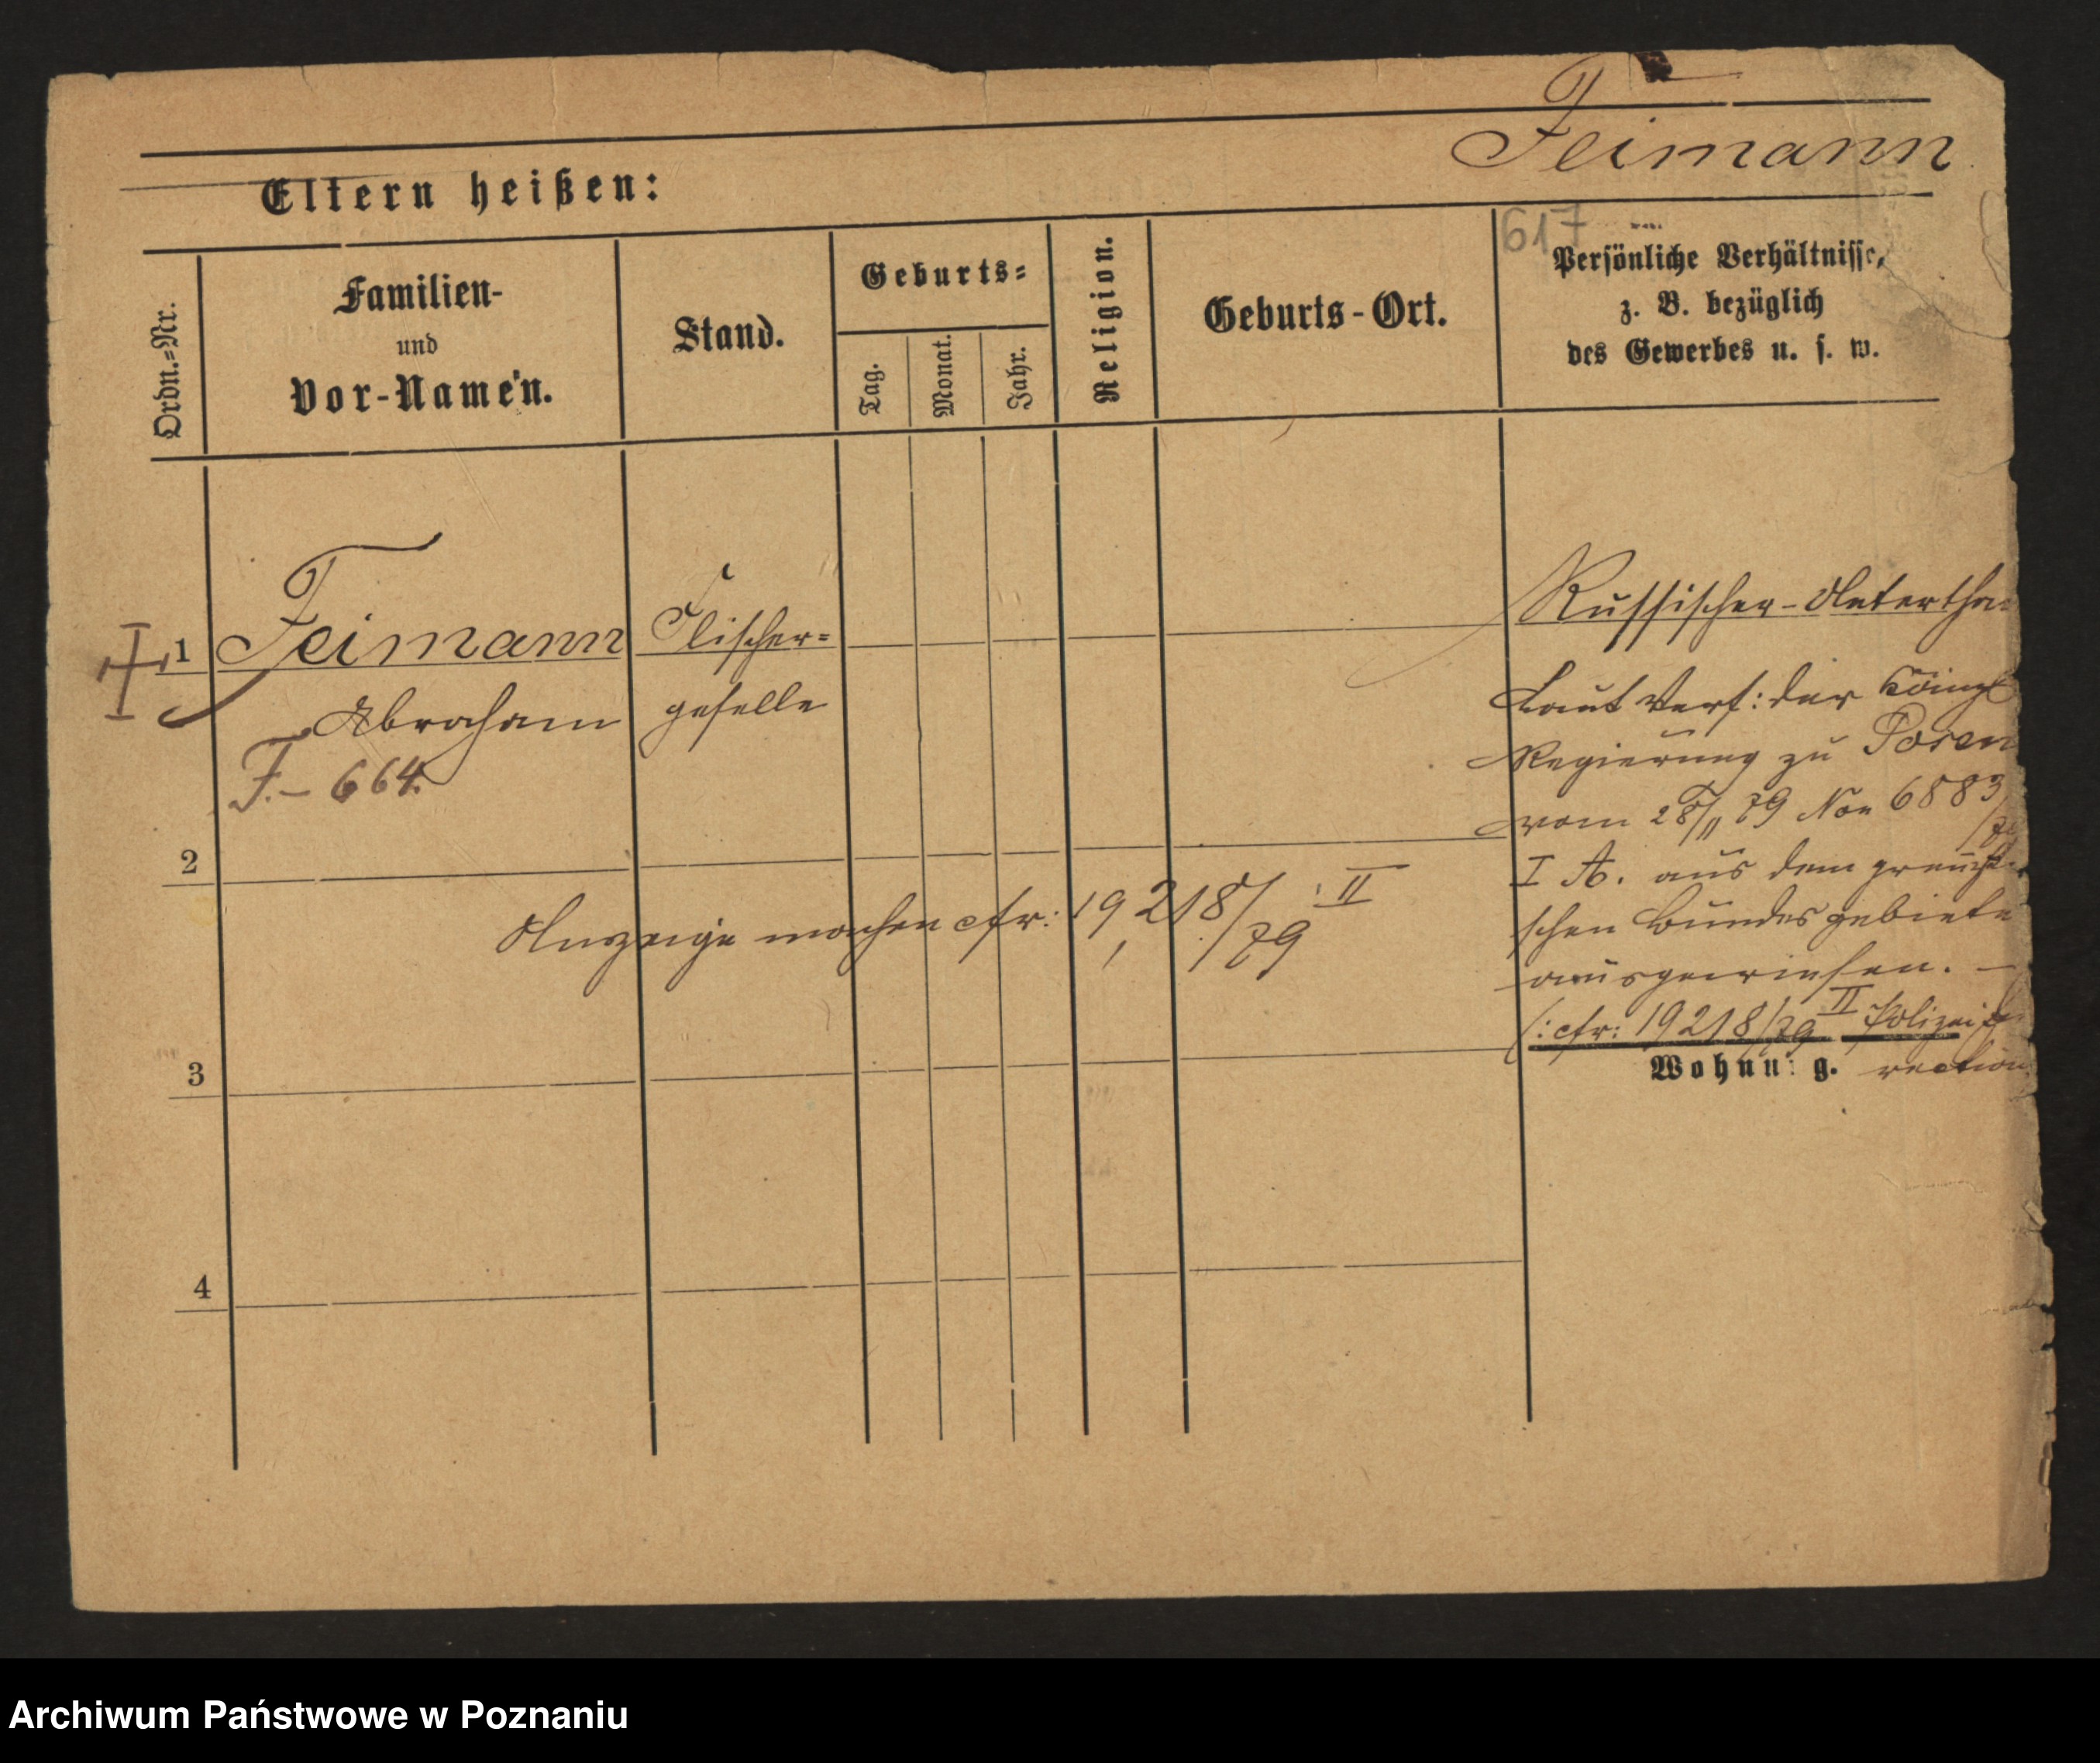 Feimann
Eltern heißen:
617
Ordn.=Nr.
Familien-
und
Vor-Namen.
Stand.
Geburts=
Tag.
Monat.
Jahr.
Religion.
Geburts-Ort.
Persönliche Verhältnisse,
z. B. bezüglich
des Gewerbes u. s. w.
1
Feimann
Abraham
F.- 664.
Flischer=
geselle
Russischer-Unterthan
Laut Verf: der Köingl
Regierung zu Posen
vom 28/11 79 Non 6883/79
I A. aus dem
schen Bundesgebiete
ausgewiesen. —
(: cfr: 19218/79 II Polizei di
rection
Wohnung.
2
Anzeige machen cfr: 19,218/79 II
3
4
Archiwum Państwowe w Poznaniu